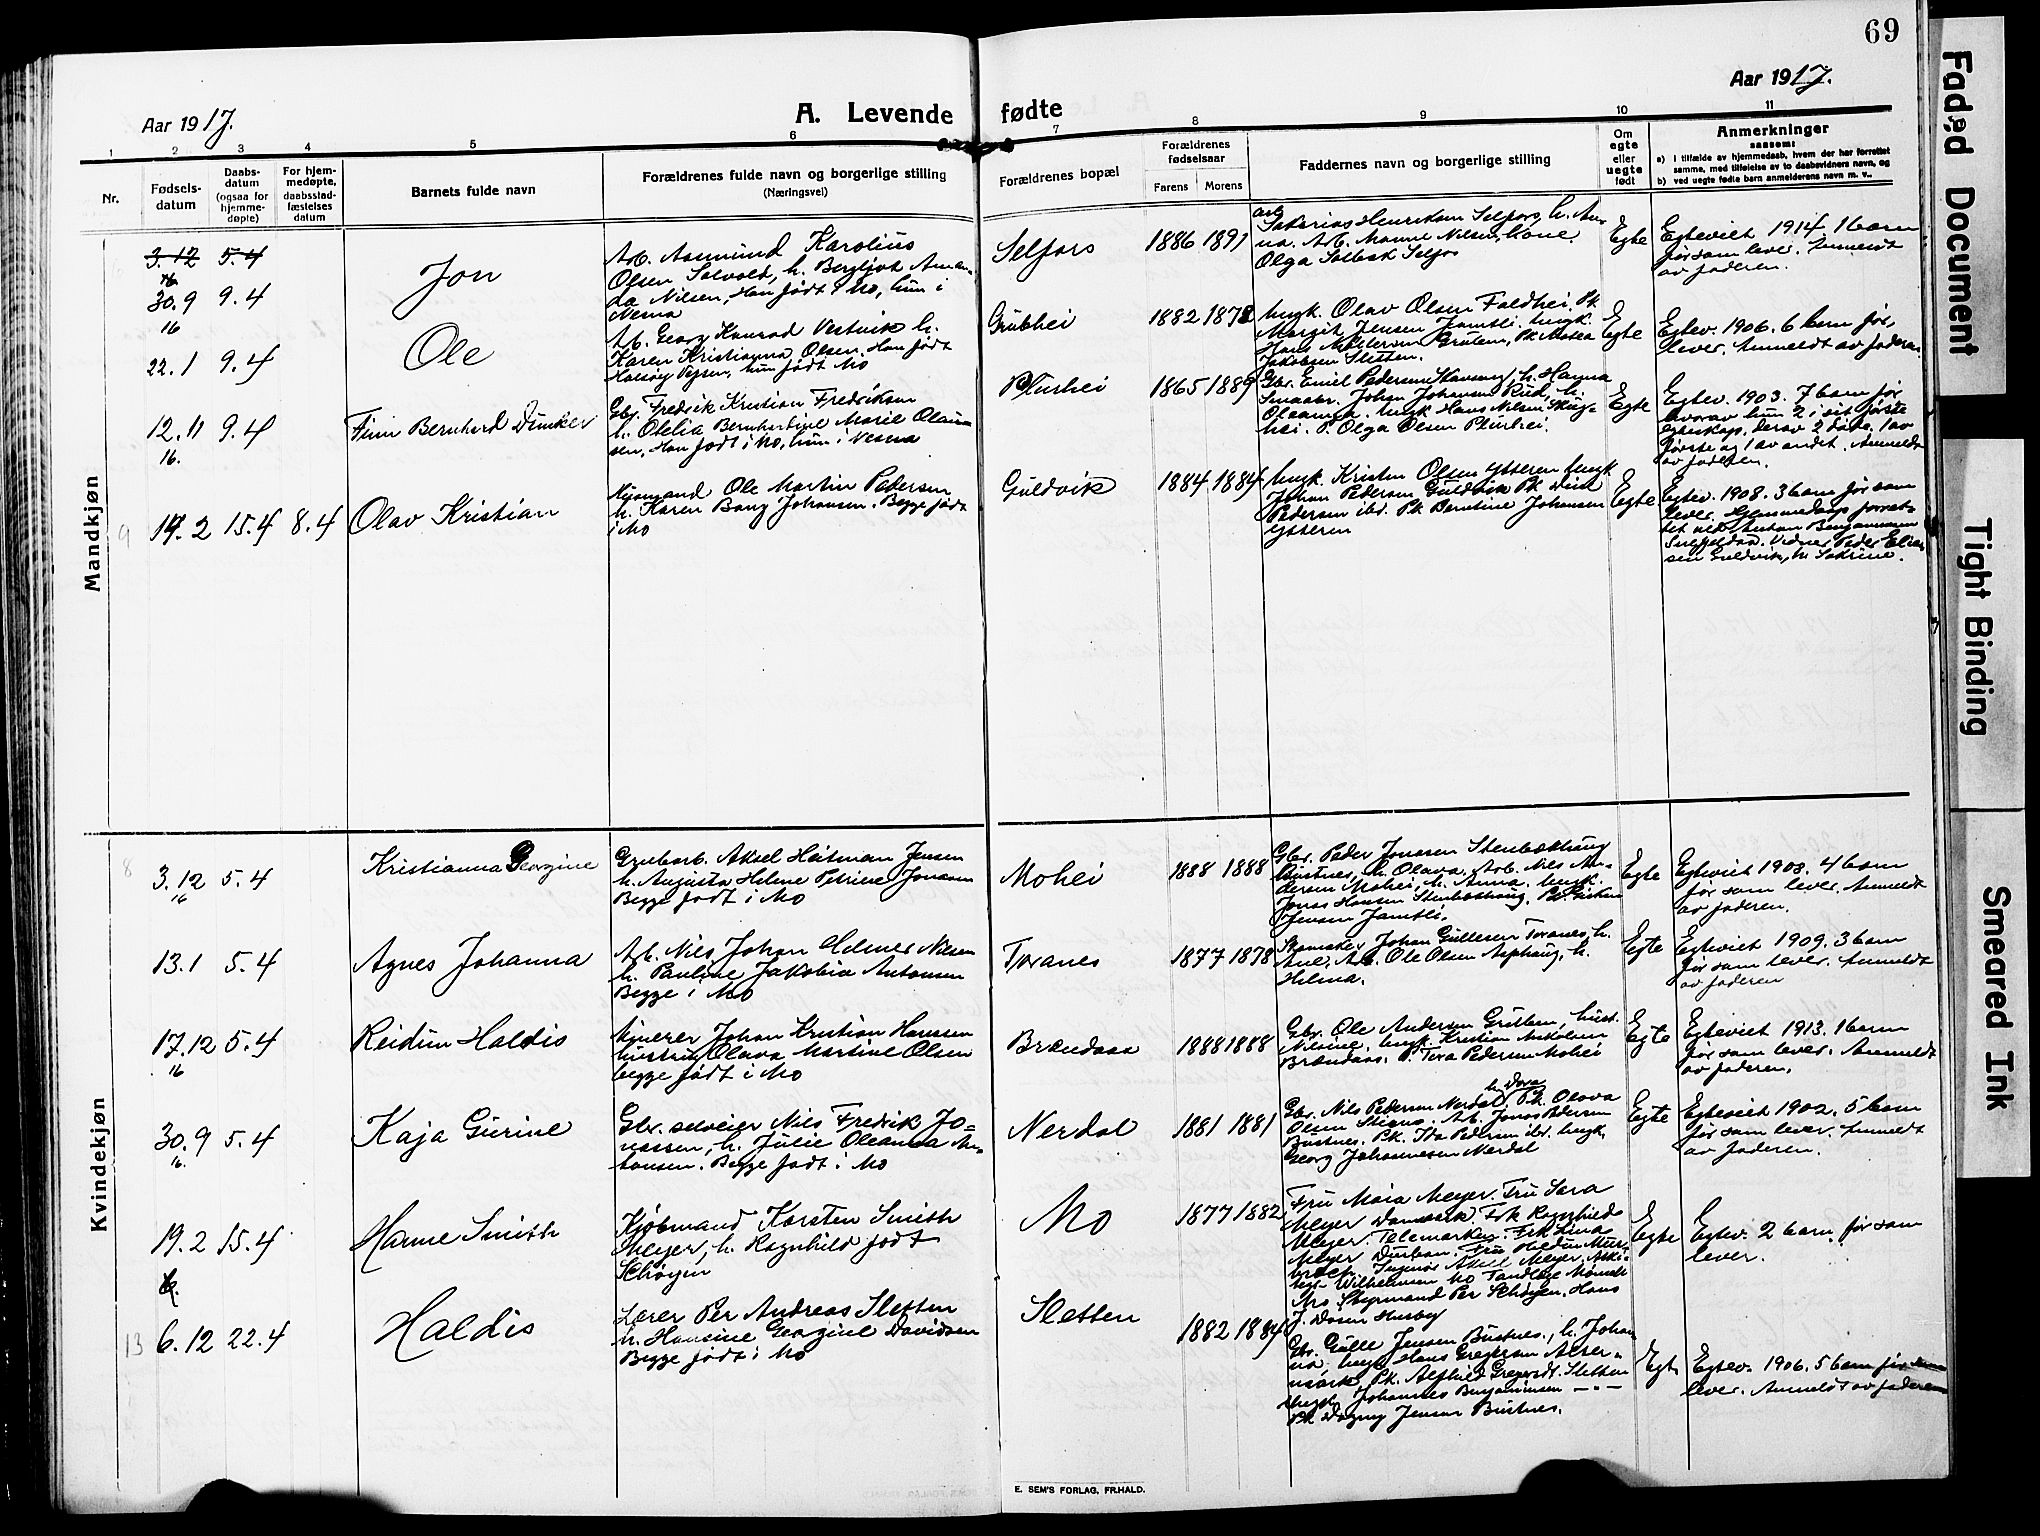 69
Aar 1917.
A. Levende fødte
Aar 1917.
1 2 3 4 5 6 7 8 9 10 11
Nr.
Fødsels-
datum
Daabs-
datum
(ogsaa for
hjemme-
døpte)
For hjem-
medøpte,
daabsstad-
fæstelses
datum
Barnets fulde navn
Forældrenes fulde navn og borgerlige stilling
(Næringsvei)
Forældrenes bopæl
Forældrenes
fødselsaar
Farens Morens
Faddernes navn og borgerlige stilling
Om
egte
eller
uegte
født
Anmerkninger
saasom:
a) i tilfælde av hjemmedaab, hvem der har forrettet
samme, med tilføielse av to daabsvidners navn, og
b) ved uegte fødte barn anmelderens navn m. v..
Mandkjøn
3.12 5.4
16
30.9 9.4
16
Jon
Arb. Aasmund Karolius
Olsen Solvold, h. Bergljot Aman-
da Nilsen, Han født i Mo, hun i
Nesna
Selfors
1886 1891
Sakarias Henriksen Selfors, h. An-
na. Arb. Manne Nilsen, kone.
Olga Solbak Selfors
Egte
Egteviet 1914. 1 barn
før som lever. Anmeldt
av faderen.
22.1 9.4
Ole
Arb. Georg Konrad Vestvik h.
Karen Kristianna Olsen. Han født
hun født Mo
Grubhei
1882
Ungk. Olav Olsen Faldhei, Pk.
Margit Jensen Jamtli. Ungk.
Hans Grüben, Pk.
Jakobsen Sletten.
Egte
Egtev. 1906. 6 barn før,
lever. Anmeldt av faderen.
12.11 9.4
16.
Finn Bernhard Dunker
Gbr. Fredrik Kristian Fredriksen
h. Otelia Bernhartine Marie Olaus-
sen, Han født i Mo, hun i Nesna
Plurhei
1865 1889
Gbr. Emil Pedersen h. Hanna
Smaabr. Johan Johansen h.
Oleanna. Ungk Hans Nilsen
hei. P. Olga Olsen Plurhei.
Egte
Egtev. 1903. 7 barn før
hvorav hun 2 i sit første
egteskap, derav 2 døde, 1 av
første og 1 av andet. Anmeldt
av faderen.
9 14.2 15.4 8.4
Olav Kristian
Ole Martin Pedersen
h. Karen Bang Johansen. Begge født
i Mo
Guldvik
1884 1884
Ungk. Kristen Olsen Ytteren Ungk
Johan Pedersen Guldvik Pk
Pedersen ibd. Pk. Berntine Johansen
Ytteren
Egte
Egtev. 1908. 3 barn før som
lever. Hjemmedaap forret-
tet ved Anton Benjaminsen
Vidner Peder Elias-
sen Guldvik, h. Sakrine.
Kvindekjøn
8 3.12 5.4
16
Kristianna Georgine
Grubearb. Aksel Heitman Jensen
h. Augusta Helene Petrine Jonassen
Begge født i Mo
Mohei
1888 1888
Gbr. Peder Jonasen Stenbækhaug
Bustnes, h. Olava. Arb. Nils An-
dersen Mohei, h. Anna. Ungk.
Jonas Hansen Stenbækhaug. Pk.
Jensen Jamtli.
Egte
Egteviet 1908. 4 barn
før som lever. Anmeldt
av faderen.
13.1 5.4
Agnes Johanna
Arb. Nils Johan Helmer Nilsen
h. Pauline Jakobia Antonsen
Begge i Mo
Toranes
1877 1878
Johan Gullesen Toranes, h.
Ane, Arb. Ole Olsen h.
Helma.
Egte
Egteviet 1909. 3 barn
før som lever. Anmeldt
av faderen
17.12 5.4
16
Reidun Haldis
Johan Kristian Hanssen
hustru Olava Martine Olsen
begge født i Mo
Brændaas
1888 1888
Gbr. Ole Andersen Grüben, hust.
Nilsine, Ungk. Kristian
Brændaas. P. Tora Pedersen Mohei
Egte
Egteviet 1913. 1 barn
før som lever. Anmeldt
av faderen.
30.9 5.4
16.
Kaja Gurine
Gbr. selveier Nils Fredrik Jo-
nassen, h. Julie Oleanna An-
tonsen. Begge født i Mo
Nerdal
1881 1881
h. Dora
Gbr. Nils Pedersen Nerdal, Pk. Olava
Olsen Arb. Jonas Pedersen
Bustnes. Pk. Ida Pedersen ibr. Ungk.
Georg Johannesen Nerdal
Egte
Egteviet 1902. 5 barn
før som lever. Anmeldt
av faderen.
19.2 15.4
Hanne Smith
Kjøbmand Karsten Smith
Meyer, h. Ragnhild født
Schøyen
Mo
1877 1882
Fru Maia Meyer. Fru Sara
Meyer Danmark, Frk Ragnhild
Meyer. Telemarken. Frk Lina
Meyer Durban. Fru
Ingeniør Aksel Meyer,
Wilhelmsen Mo Tandlæge
Mo Styrmand Per Schøyen, Hans
J. Husby
Egte
Egtev. 2 barn før som
lever.
13 6.12 22.4
Haldis
Lærer Per Andreas Sletten
h. Hansine Georgine Davidsen
Begge født i Mo
Sletten
1882 1884
Gbr. Gulle Jensen Bustnes, h. Johan-
na, Ungk Hans Gregersen
Pk. Alfhild Sletten
Ungk. Johannes Benjaminsen — " —
Pk Dagny Jensen Bustnes.
Egte
Egtev. 1906. 5 barn før som
lever. Anmeldt av faderen
E. SEM'S FORLAG, FR.HALD.
Faded Document
Tight Binding
Smeared Ink